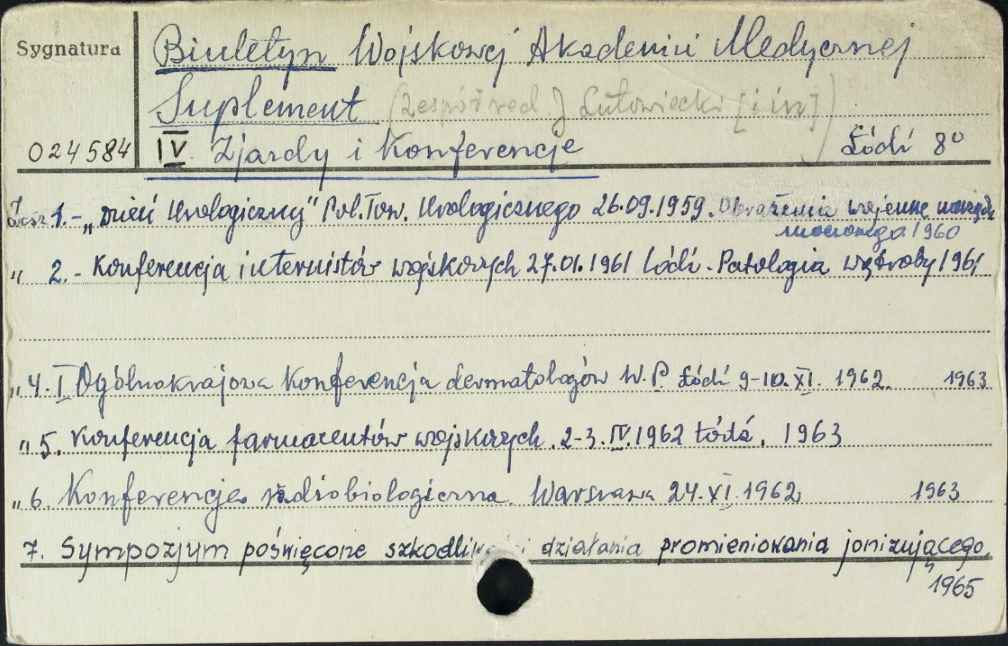 Sygnatura
Biuletyn Wojskowej Akademii Medycznej
Suplement (Zespół red J Lutowiecki [i in])
024584 IV Zjazdy i Konferencje Łódź 8°
Zesz 1. - „Dzień Urologiczny" Pol. Tow. Urologicznego 26.09.1959. Obrażenia wojenne narządu
moczowego 1960
" 2. - Konferencja internistów wojskowych 27.01.1961 Łódź - Patologia wątroby 1961
" 4. I Ogólnokrajowa Konferencja dermatologów W.P. Łódź 9-10.XI. 1962. 1963
" 5. Konferencja farmaceutów wojskowych. 2-3.IV.1962 Łódź. 1963
" 6. Konferencja radiobiologiczna. Warszawa 24.XI.1962 1963
7. Sympozjum poświęcone szkodliwości działania promieniowania jonizującego.
1965